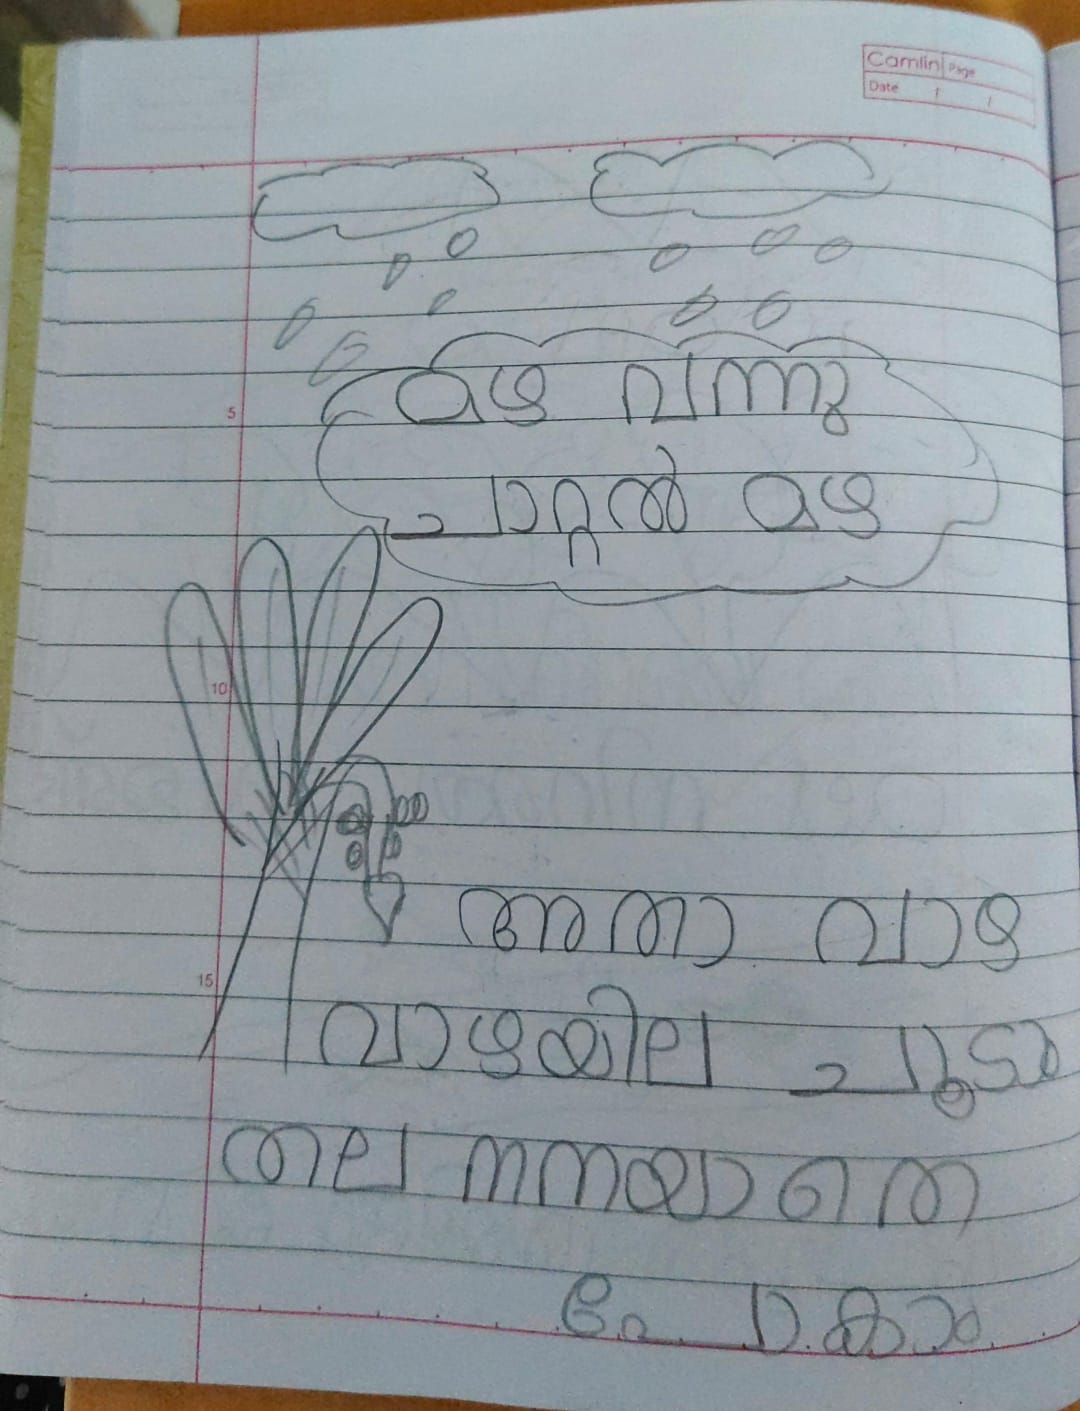 Camlin Page
Date / /
മഴ വന്നു
ചാറ്റൽ മഴ
5
10
അതാ വാഴ
15
വാഴയില ചൂടാം
തല നനയാതെ
പോകാം